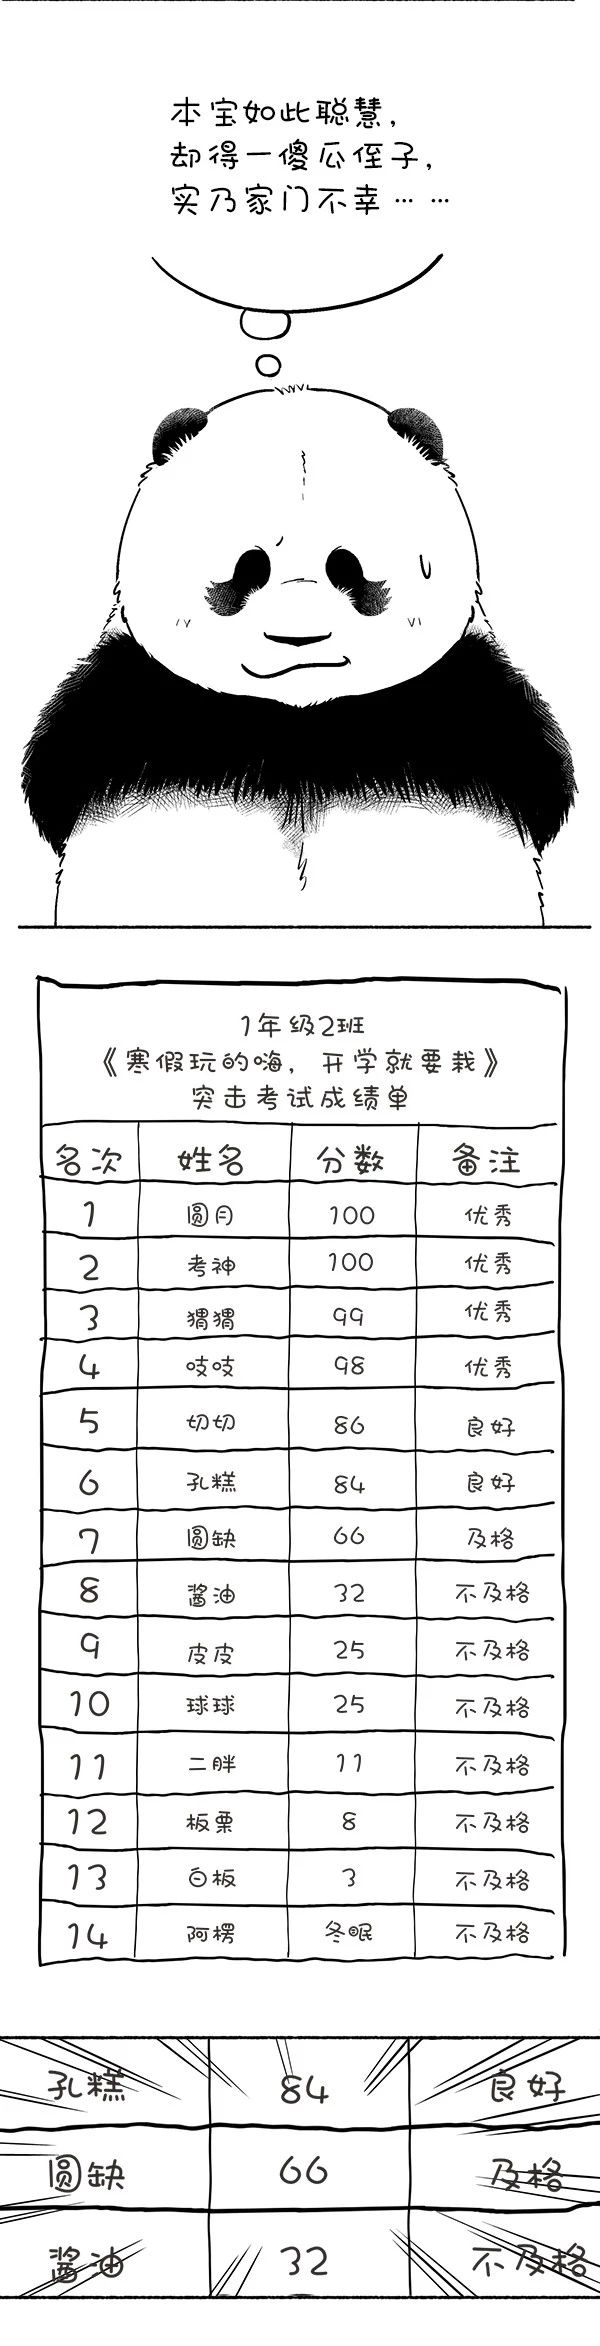 本宝如此聪慧，
却得一傻瓜侄子，
实乃家门不幸……
1年级2班
《寒假玩的嗨，开学就要栽》
突击考试成绩单
名次 姓名 分数 备注
1 圆月 100 优秀
2 考神 100 优秀
3 猬猬 99 优秀
4 吱吱 98 优秀
5 切切 86 良好
6 孔糕 84 良好
7 圆缺 66 及格
8 酱油 32 不及格
9 皮皮 25 不及格
10 球球 25 不及格
11 二胖 11 不及格
12 板栗 8 不及格
13 白板 3 不及格
14 阿楞 冬眠 不及格
孔糕 84 良好
圆缺 66 及格
酱油 32 不及格